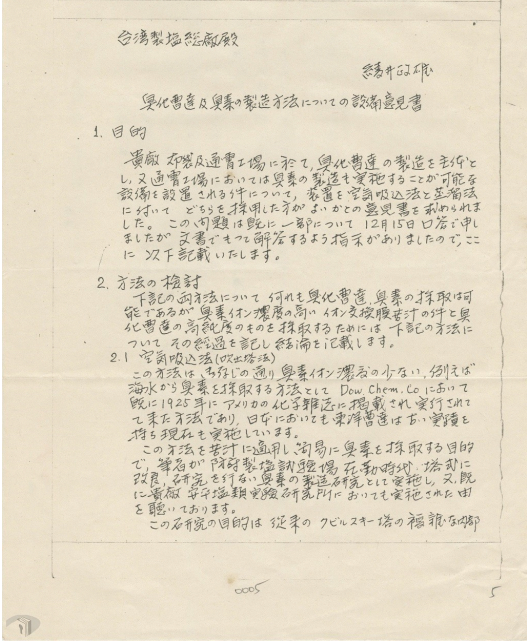 台湾製塩総廠殿
井政雄
臭化曹達及臭素の製造方法についての設備意見書
1. 目的
貴廠 布袋及通霄工場に於て、臭化曹達の製造を主体と
し、又通霄工場においては臭素の製造も実施することが可能な
設備を設置される件について、装置を空気吸込法と蒸溜法
に付いて どちらを採用した方がよいかとの意見書を求められま
した。この問題は既に一部について 12月15日 口答で申し
ましたが 文書でもつて解答するよう指示がありましたので、ここ
に 以下記載いたします。
2. 方法の検討
下記の両方法について 何れも臭化曹達、臭素の採取は可
能であるが 臭素イオン濃度の高い イオン交換膜苦汁の件と臭
化曹達の高純度のものを採取するためには 下記の方法に
ついて その経過を記し結論を記載します。
2.1 空気吸込法(吹出塔法)
この方法は、御存じの通り臭素イオン濃度の少ない、例えば
海水から臭素を採取する方法として Dow.Chem.Co において
既に1925年に アメリカの化学雑誌に掲載され実行されて
て来た方法であり、日本においても東洋曹達は古い実績を
持ち現在も実施しています。
この方法を苦汁に適用し、簡易に臭素を採取する目的
で、筆者が 防府製塩試験場 在勤時代、塔式に
改良、研究を行ない臭素の製造研究として実施し、又、既
に貴廠 安平塩類実験研究所においても実施された由
を聴いております。
この研究の目的は 従来の クビルスキー塔の複雑な内部
0005
5